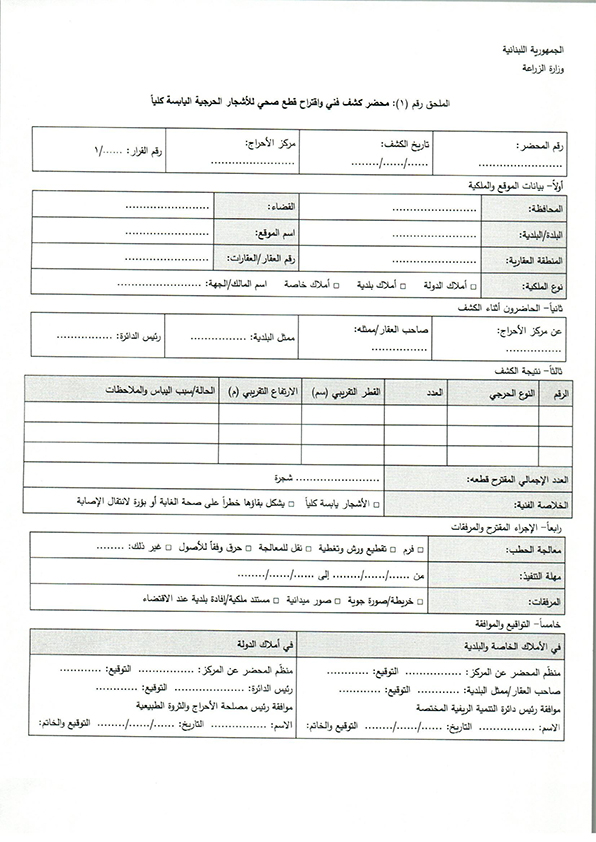 الجمهورية اللبنانية
وزارة الزراعة
الملحق رقم (١): محضر كشف فني واقتراح قطع صحي للأشجار الحرجية اليابسة كلياً
رقم المحضر: ........................ تاريخ الكشف: ....../....../...... مركز الأحراج: ........................ رقم القرار: ....../١
أولاً- بيانات الموقع والملكية
المحافظة: ........................ القضاء: ........................
البلدة/البلدية: ........................ اسم الموقع: ........................
المنطقة العقارية: ........................ رقم العقار/العقارات: ........................
نوع الملكية: □ أملاك الدولة □ أملاك بلدية □ أملاك خاصة اسم المالك/الجهة: ........................
ثانياً- الحاضرون أثناء الكشف
عن مركز الأحراج: ................ صاحب العقار/ممثله: ................ ممثل البلدية: ................ رئيس الدائرة: ................
ثالثاً- نتيجة الكشف
الرقم النوع الحرجي العدد القطر التقريبي (سم) الارتفاع التقريبي (م) الحالة/سبب اليباس والملاحظات
العدد الإجمالي المقترح قطعه: ........................ شجرة
الخلاصة الفنية: □ الأشجار يابسة كلياً □ يشكل بقاؤها خطراً على صحة الغابة أو بؤرة لانتقال الإصابة
رابعاً- الإجراء المقترح والمرفقات
معالجة الحطب: □ فرم □ تقطيع ورش وتغطية □ نقل للمعالجة □ حرق وفقاً للأصول □ غير ذلك: ........
مهلة التنفيذ: من ....../....../........ إلى ....../....../........
المرفقات: □ خريطة/صورة جوية □ صور ميدانية □ مستند ملكية/إفادة بلدية عند الاقتضاء
خامساً- التواقيع والموافقة
في الأملاك الخاصة والبلدية
منظّم المحضر عن المركز: ................ التوقيع: ............
صاحب العقار/ممثل البلدية: ............ التوقيع: ............
موافقة رئيس دائرة التنمية الريفية المختصة
الاسم: ................ التاريخ: ....../....../...... التوقيع والخاتم:
في أملاك الدولة
منظّم المحضر عن المركز: ................ التوقيع: ............
رئيس الدائرة: ............ التوقيع: ............
موافقة رئيس مصلحة الأحراج والثروة الطبيعية
الاسم: ................ التاريخ: ....../....../...... التوقيع والخاتم: